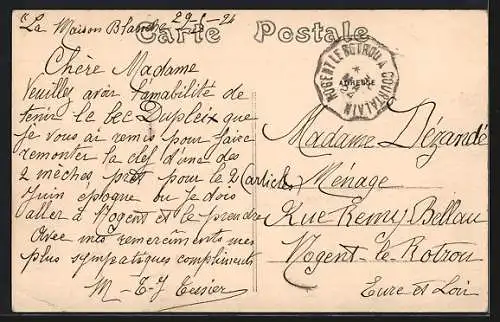 La Maison Blanche 29-5-24
Carte Postale
ADRESSE
NOGENT LE ROTROU A COURTALAIN
Chère Madame
Veuillez avoir l'amabilité de
tenir le bec Dupleix que
je vous ai remis pour faire
remonter la clef d'une des
2 mèches prêt pour le 2
Juin époque ou je dois
aller à Nogent et le prendre
Avec mes remerciments mes
plus sympatiques compliments
M-E-J Tessier
Madame Dézandé
(articles) Ménage
Rue Remy Bellau
Nogent-le-Rotrou
Eure et Loir